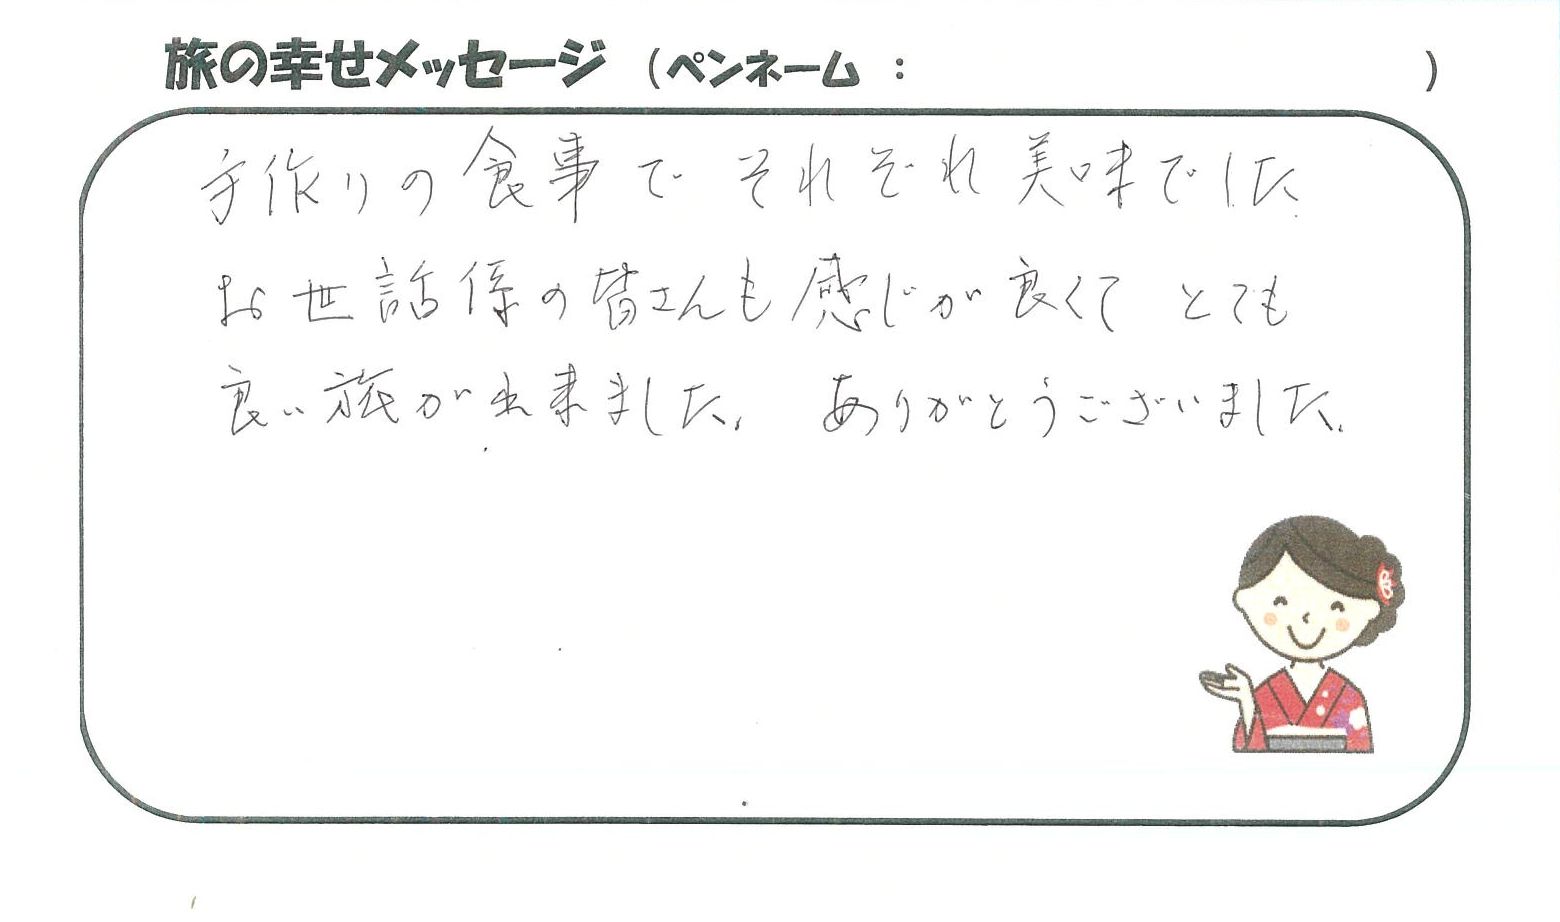 旅の幸せメッセージ (ペンネーム: )
手作りの食事で それぞれ美味でした
お世話係の皆さんも感じが良くて とても
良い旅が出来ました。 ありがとうございました。